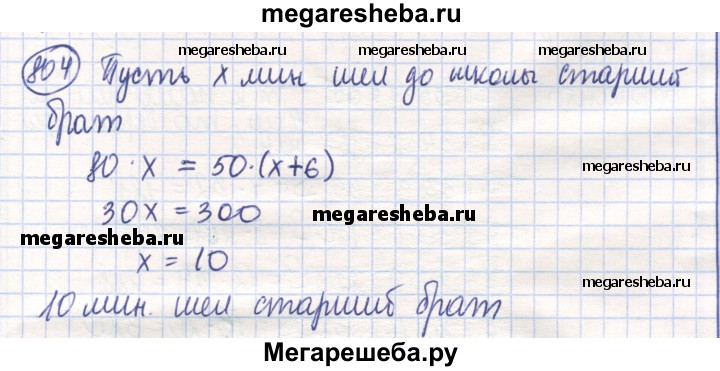 megaresheba.ru
804 Пусть x мин шел до школы старший
megaresheba.ru megaresheba.ru megaresheba.ru
брат
80 · x = 50·(x+6) megaresheba.ru
30x = 300 megaresheba.ru
megaresheba.ru
x = 10
megaresheba.ru
10 мин. шел старший брат
Мегарешеба.ру